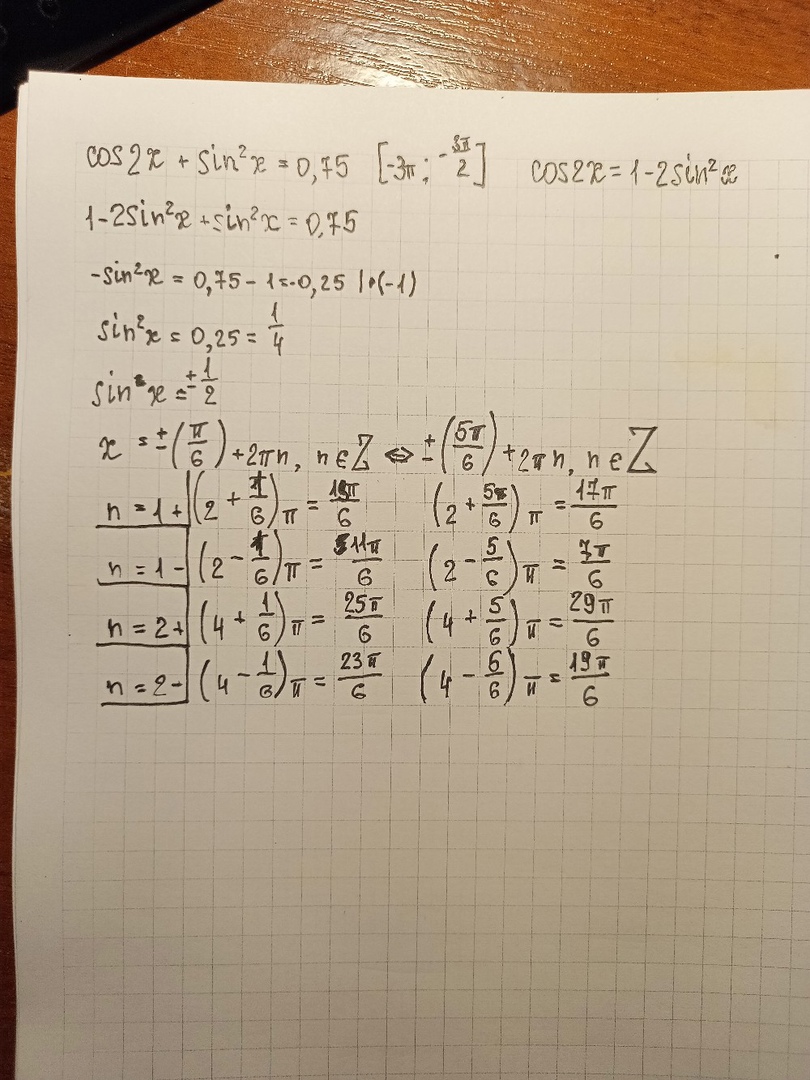 cos2x + sin²x = 0,75 [-3π ; -3π/2] cos2x = 1-2sin²x
1-2sin²x + sin²x = 0,75
-sin²x = 0,75 - 1 = -0,25 |•(-1)
sin²x = 0,25 = 1/4
sin x = ±1/2
x = ±(π/6) + 2πn, n∈Z ⇔ ±(5π/6) + 2πn, n∈Z
n = 1+ (2 + 1/6)π = 13π/6 (2 + 5/6)π = 17π/6
n = 1- (2 - 1/6)π = 11π/6 (2 - 5/6)π = 7π/6
n = 2+ (4 + 1/6)π = 25π/6 (4 + 5/6)π = 29π/6
n = 2- (4 - 1/6)π = 23π/6 (4 - 5/6)π = 19π/6